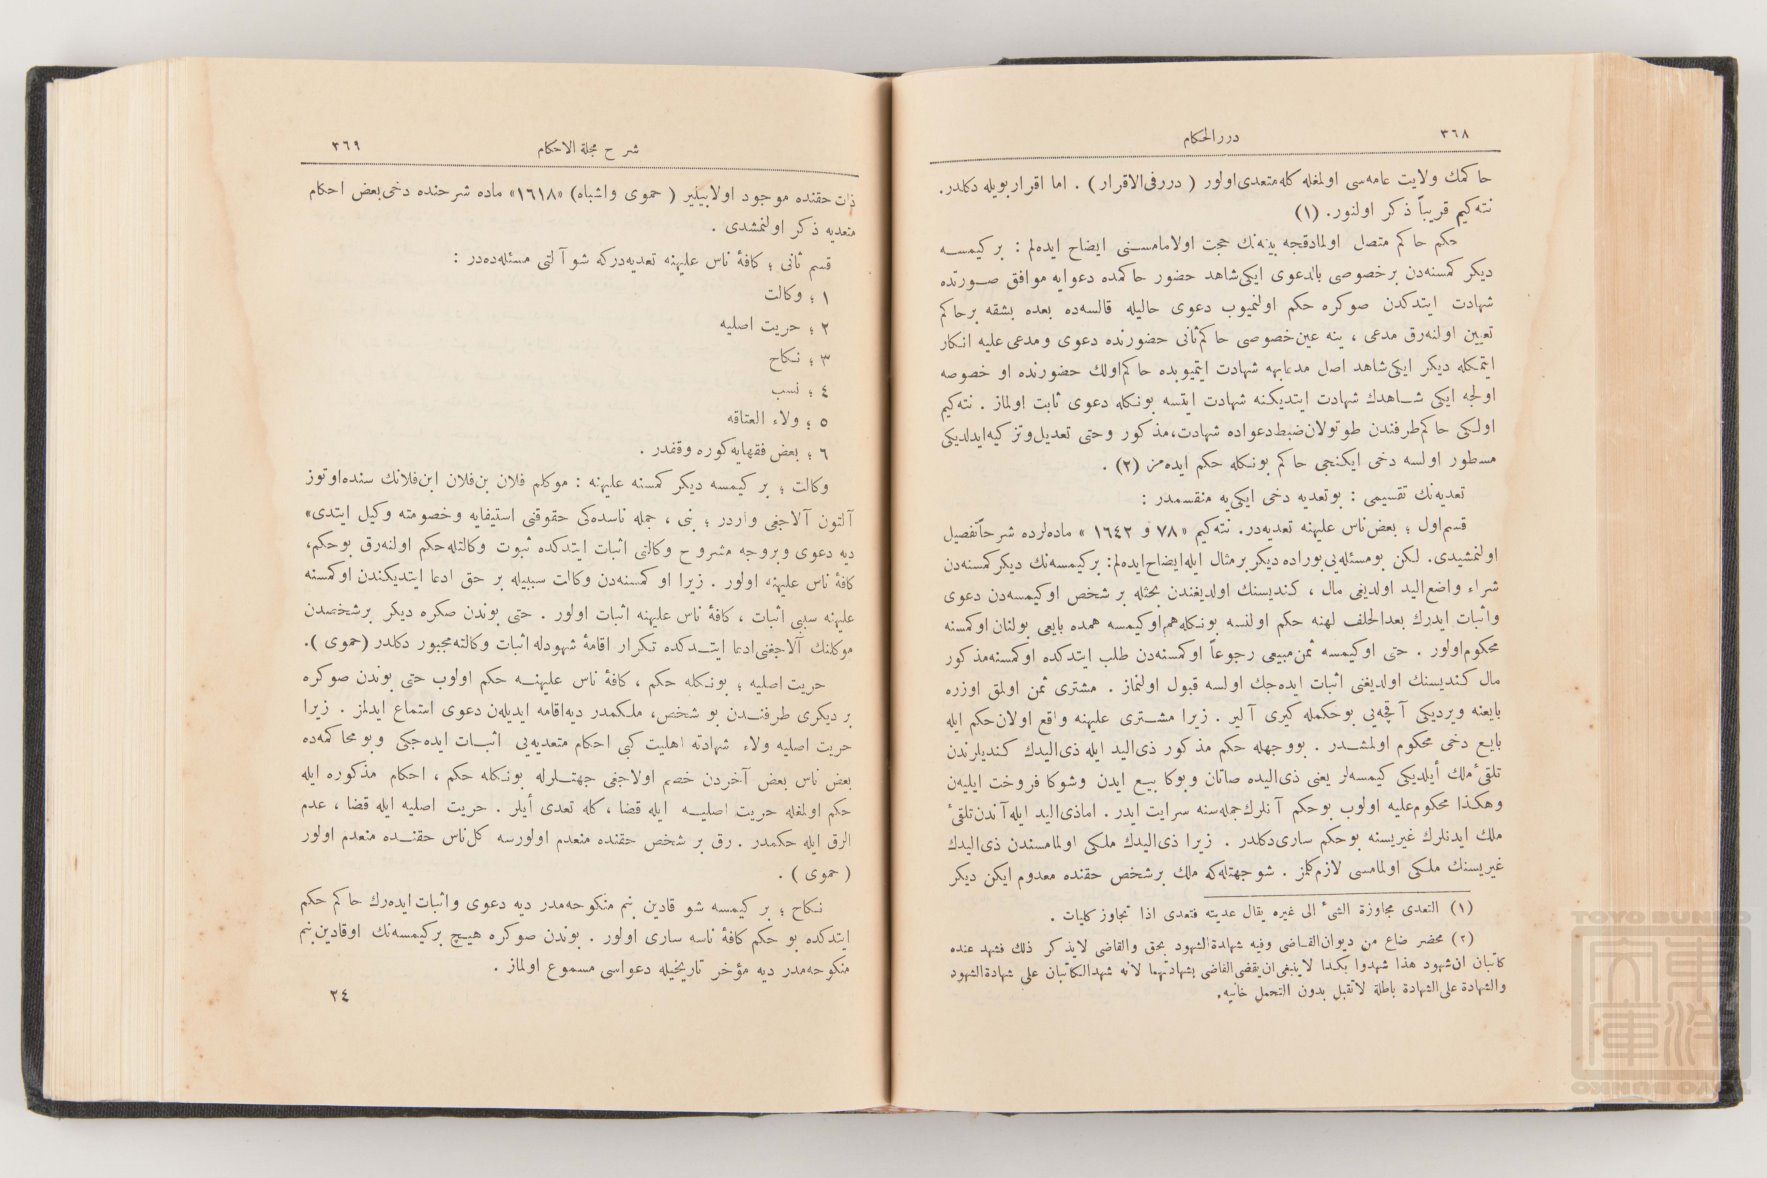 ٣٦٨
دررالحكام
حاكمك ولايت عامه‌سی اولمغله كله‌متعدی‌اولور ( دررفی‌الاقرار ) . اما اقراربويله دكلدر.
نته‌كيم قريباً ذكر اولنور. (١)
حكم حاكم متصل اولمادقجه بينه‌نك حجت اولامامسنی ايضاح ايده‌لم : بر كيمسه
ديكر كمسنه‌دن برخصوصی بالدعوی ايكی‌شاهد حضور حاكمده دعوايه موافق صورتده
شهادت ايتدكدن صوكره حكم اولنميوب دعوی حاليله قالسه‌ده بعده بشقه برحاكم
تعيين اولنه‌رق مدعی ، ينه عين‌خصوصی حاكم‌ثانی حضورنده دعوی ومدعی‌عليه انكار
ايتمكله ديكر ايكی‌شاهد اصل مدعابهه شهادت ايتميوبده حاكم‌اولك حضورنده او خصوصه
اولجه ايكی شاهدك شهادت ايتديكنه شهادت ايتسه بونكله دعوی ثابت اولماز . نته‌كيم
اولكی حاكم‌طرفندن طوتولان‌ضبط‌دعواده شهادت‌مذكور وحتی تعديل‌وتزكيه‌ايدلديكی
مسطور اولسه دخی ايكنجی حاكم بونكله حكم ايده‌مز (٢) .
تعديه‌نك تقسيمی : بوتعديه دخی ايكی‌يه منقسمدر :
قسم‌اول ؛ بعض‌ناس عليهنه تعديه‌در. نته‌كيم «٧٨ و ١٦٤٢ » ماده‌لرده شرحاًتفصيل
اولنمشيدی. لكن بومسئله‌يی‌بوراده ديكر برمثال ايله‌ايضاح‌ايده‌لم: بركيمسه‌نك ديكر كمسنه‌دن
شراء واضع‌اليد اولديغی مال ، كنديسنك اولديغندن بحثله بر شخص اوكيمسه‌دن دعوی
واثبات ايدرك بعدالحلف لهنه حكم اولنسه بونكله‌هم‌اوكيمسه همده بايعی بولنان اوكمسنه
محكوم‌اولور . حتی اوكيمسه ثمن‌مبيعی رجوعاً اوكمسنه‌دن طلب ايتدكده اوكمسنه‌مذكور
مال كنديسنك اولديغنی اثبات ايده‌جك اولسه قبول اولنماز . مشتری ثمن اولمق اوزره
بايعنه ويرديكی آقچه‌يی بوحكمله كيری آلير . زيرا مشتری عليهنه واقع اولان‌حكم ايله
بايع دخی محكوم اولمشدر . بووجهله حكم مذكور ذی‌اليد ايله ذی‌اليدك كنديلرندن
تلقیٔ ملك أيلديكی كيمسه‌لر يعنی ذی‌اليده صاتان وبوكا بيع ايدن وشوكا فروخت ايليه‌ن
وهكذا محكوم‌عليه اولوب بوحكم آنلرك‌جمله‌سنه سرايت ايدر . اماذی‌اليد ايله‌آندن‌تلقیٔ
ملك ايدنلرك غيريسنه بوحكم ساری‌دكلدر . زيرا ذی‌اليدك ملكی اولمامسندن ذی‌اليدك
غيريسنك ملكی اولمامسی لازم‌كلمز . شوجهتله‌كه ملك برشخص حقنده معدوم ايكن ديكر
(١) التعدی مجاوزة الشیٔ الی غيره يقال عديته فتعدی اذا تجاوز كليات .
(٢) محضر ضاع من ديوان‌القاضی وفيه شهادةالشهود بحق والقاضی لايذكر ذلك فشهد عنده
كاتبان ان‌شهود هذا شهدوا بكذا لاينبغی‌ان‌يقضی‌القاضی بشهادتهما لانه شهدالكاتبان علی شهادةالشهود
والشهادة علی‌الشهادة باطلة لاتقبل بدون التحمل خانيه.
شرح مجلة الاحكام
٣٦٩
ذات حقنده موجود اولابيلير ( حموی واشباه) «١٦١٨» ماده شرحنده دخی‌بعض احكام
متعديه ذكر اولنمشدی .
قسم ثانی ؛ كافهٔ ناس عليهنه تعديه‌دركه شو آلتی مسئله‌ده‌در :
١ ؛ وكالت
٢ ؛ حريت اصليه
٣ ؛ نكاح
٤ ؛ نسب
٥ ؛ ولاء العتاقه
٦ ؛ بعض فقهايه‌كوره وقفدر .
وكالت ؛ بر كيمسه ديكر كمسنه عليهنه : موكلم فلان بن‌فلان ابن‌فلانك سنده‌اوتوز
آلتون آلاجغی واردر ؛ بنی ، جمله ناسده‌كی حقوقنی استيفايه وخصومته وكيل ايتدی»
ديه دعوی وبروجه مشروح وكالتی اثبات ايتدكده ثبوت وكالتله‌حكم اولنه‌رق بوحكم،
كافهٔ ناس عليهنه اولور . زيرا او كمسنه‌دن وكالت سببيله بر حق ادعا ايتديكندن اوكمسنه
عليهنه سببی اثبات ، كافهٔ ناس عليهنه اثبات اولور . حتی بوندن صكره ديكر برشخصدن
موكلنك آلاجغنی‌ادعا ايتدكده تكرار اقامهٔ شهودله اثبات وكالته‌مجبور دكلدر (حموی ).
حريت اصليه ؛ بونكله حكم ، كافهٔ ناس عليهنه حكم اولوب حتی بوندن صوكره
بر ديكری طرفندن بو شخص، ملكمدر ديه‌اقامه ايديله‌ن دعوی استماع ايدلمز . زيرا
حريت اصليه ولاء شهادته اهليت كبی احكام متعديه‌يی اثبات ايده‌جكی وبومحاكمه‌ده
بعض ناس بعض آخردن خصم اولاجغی جهتلرله بونكله حكم ، احكام مذكوره ايله
حكم اولمغله حريت اصليه ايله قضا ، كله تعدی أيلر . حريت اصليه ايله قضا ، عدم
الرق ايله حكمدر . رق بر شخص حقنده منعدم اولورسه كل‌ناس حقنده منعدم اولور
( حموی ) .
نكاح ؛ بر كيمسه شو قادين بنم منكوحه‌مدر ديه دعوی واثبات‌ايده‌رك حاكم حكم
ايتدكده بو حكم كافهٔ ناسه ساری اولور . بوندن صوكره هيچ بركيمسه‌نك اوقادين‌بنم
منكوحه‌مدر ديه مؤخر تاريخيله دعواسی مسموع اولماز .
٢٤
TOYO BUNKO
東洋文庫
TOYO BUNKO